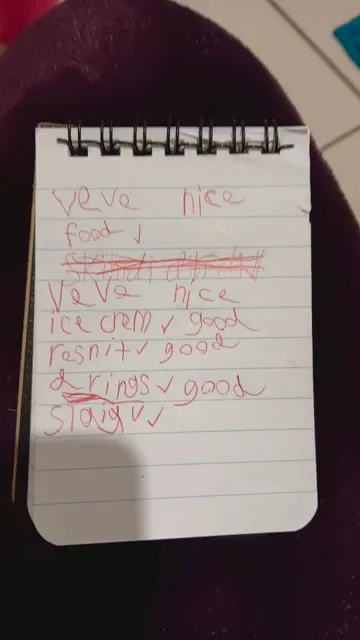 veve nice
food ✓
veve nice
ice crem ✓ good
resnit ✓ good
drings ✓ good
slaigv ✓